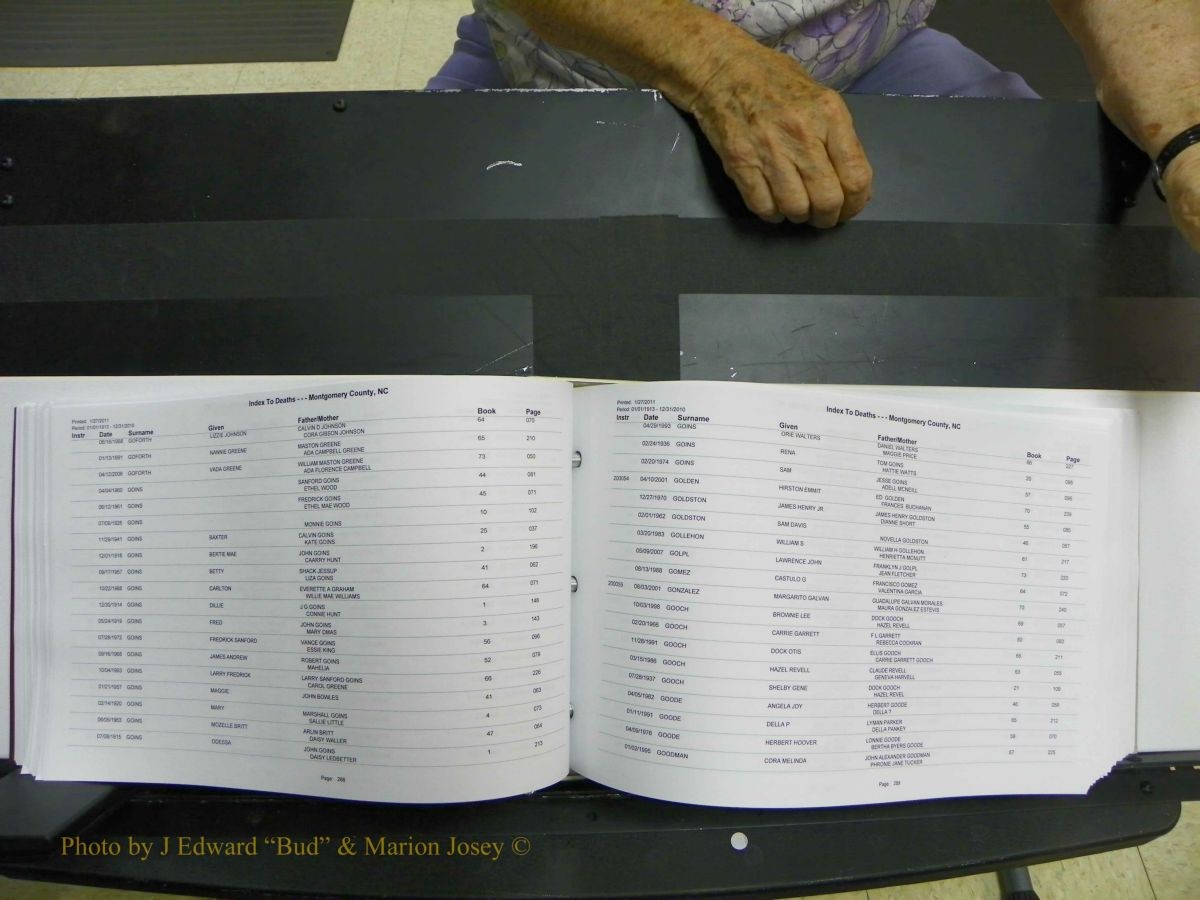 Index To Deaths - - - Montgomery County, NC
Printed: 1/27/2011
Period: 01/01/1913 - 12/31/2010
Instr Date Surname Given Father/Mother Book Page
GOFORTH LIZZIE JOHNSON CALVIN D JOHNSON 64 070
CORA GIBSON JOHNSON
01/13/1991 GOFORTH NANNIE GREENE MASTON GREENE 65 210
ADA CAMPBELL GREENE
04/12/2008 GOFORTH VADA GREENE WILLIAM MASTON GREENE 73 050
ADA FLORENCE CAMPBELL
04/04/1960 GOINS SANFORD GOINS 44 081
ETHEL WOOD
06/12/1961 GOINS FREDRICK GOINS 45 071
ETHEL MAE WOOD
GOINS MONNIE GOINS 10 102
11/29/1941 GOINS BAXTER CALVIN GOINS 25 037
KATE GOINS
12/01/1916 GOINS BERTIE MAE JOHN GOINS 2 196
CAARRY HUNT
09/17/1957 GOINS BETTY SHACK JESSUP 41 062
LIZA GOINS
10/22/1988 GOINS CARLTON EVERETTE A GRAHAM 64 071
WILLIE MAE WILLIAMS
12/30/1914 GOINS DILLIE J G GOINS 1 148
CONNIE HUNT
05/24/1919 GOINS FRED JOHN GOINS 3 143
MARY DMAS
07/28/1972 GOINS FREDRICK SANFORD VANCE GOINS 56 096
ESSIE KING
09/16/1968 GOINS JAMES ANDREW ROBERT GOINS 52 079
MAHELIA
10/04/1993 GOINS LARRY FREDRICK LARRY SANFORD GOINS 66 226
CAROL GREENE
01/21/1957 GOINS MAGGIE JOHN BOWLES 41 063
02/14/1920 GOINS MARY MARSHALL GOINS 4 073
SALLIE LITTLE
06/05/1963 GOINS MOZELLE BRITT ARLIN BRITT 47 064
DAISY WALLER
07/08/1915 GOINS ODESSA JOHN GOINS 1 213
DAISY LEDBETTER
Page 288
Index To Deaths - - - Montgomery County, NC
Printed: 1/27/2011
Period: 01/01/1913 - 12/31/2010
Instr Date Surname Given Father/Mother Book Page
04/29/1993 GOINS ORIE WALTERS DANIEL WALTERS 66 227
MAGGIE PRICE
02/24/1936 GOINS RENA TOM GOINS 20 098
HATTIE WATTS
02/20/1974 GOINS SAM JESSE GOINS 57
ADELL MCNEILL
200054 04/10/2001 GOLDEN HIRSTON EMMIT ED GOLDEN 70 239
FRANCES BUCHANAN
12/27/1970 GOLDSTON JAMES HENRY JR JAMES HENRY GOLDSTON 55
DIANNE SHORT
02/01/1962 GOLDSTON SAM DAVIS NOVELLA GOLDSTON 46 057
03/20/1983 GOLLEHON WILLIAM S WILLIAM H GOLLEHON 61 217
HENRIETTA MCNUTT
05/09/2007 GOLPL LAWRENCE JOHN FRANKLYN J GOLPL 73
JEAN FLETCHER
08/13/1988 GOMEZ CASTULO G FRANCISCO GOMEZ 64 072
VALENTINA GARCIA
200058 08/03/2001 GONZALEZ MARGARITO GALVAN GUADALUPE GALVAN MORALES 70 240
MAURA GONZALEZ ESTEVIS
10/03/1998 GOOCH BROWNIE LEE DOCK GOOCH 69 057
HAZEL REVELL
02/20/1966 GOOCH CARRIE GARRETT F L GARRETT 063
REBECCA COCKRAN
11/28/1991 GOOCH DOCK OTIS ELLIS GOOCH 65 211
CARRIE GARRETT GOOCH
03/15/1986 GOOCH HAZEL REVELL CLAUDE REVELL 63 055
GENEVA HARVELL
07/28/1937 GOOCH SHELBY GENE DOCK GOOCH 21 109
HAZEL REVEL
04/05/1962 GOODE ANGELA JOY HERBERT GOODE 46 058
DELLA ?
01/11/1991 GOODE DELLA P LYMAN PARKER 65 212
DELLA PANKEY
04/09/1976 GOODE HERBERT HOOVER LONNIE GOODE 58 070
BERTHA BYERS GOODE
01/02/1995 GOODMAN CORA MELINDA JOHN ALEXANDER GOODMAN 67 225
PHRONIE JANE TUCKER
Page 289
Photo by J Edward “Bud” & Marion Josey ©